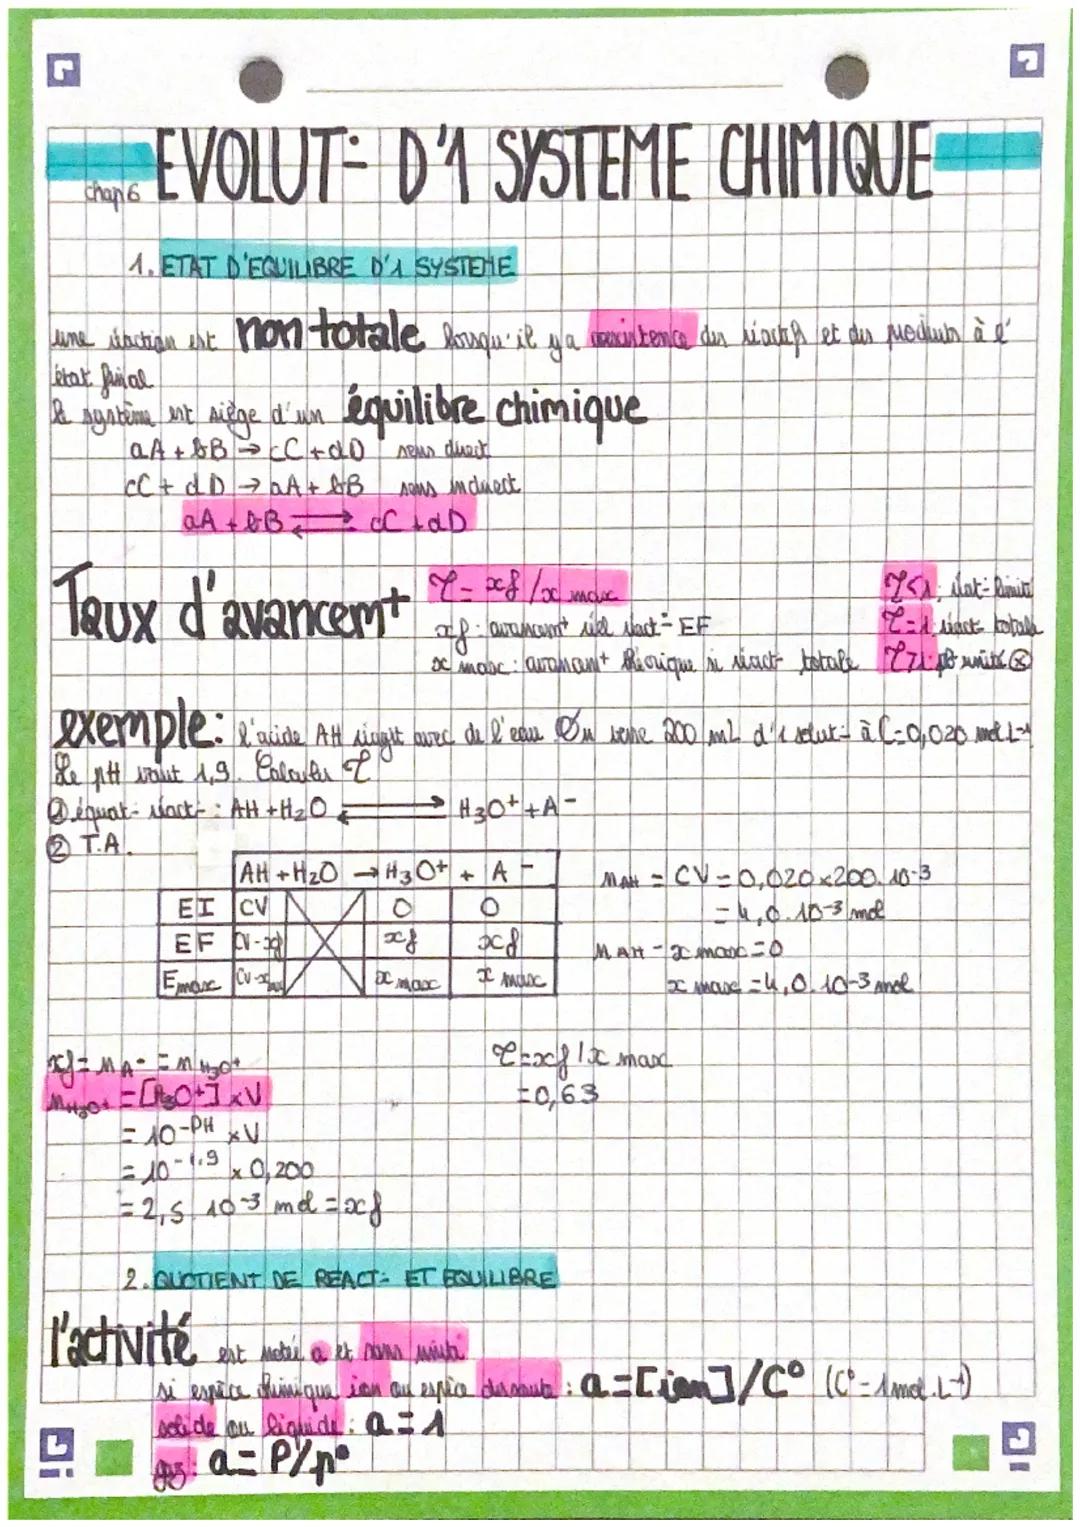 EVOLUT- D'1 SYSTEME CHIMIQUE
chap 6
1. ETAT D'EQUILIBRE D'1 SYSTEME
une réaction est non totale lorsqu'il y a coexistence des réactifs et des produits à l'
état final
le système est siège d'un équilibre chimique
aA + bB → cC + dD sens direct
cC + dD → aA + bB sens indirect
aA + bB ⇄ cC + dD
Taux d'avancemt τ = xf / x max
τ<1: réact- limité
xf: avancemt réel réact- EF
τ=1: réact- totale
x max: avancemt théorique si réact- totale
τ>1: pb unités ⊗
exemple: l'acide AH réagit avec de l'eau On verse 200 mL d'1 solut- à C=0,020 mol.L-1
Le pH vaut 1,9. Calculer τ
① équat- réact-: AH + H2O ⇄ H3O+ + A-
② T.A.
AH + H2O → H3O+ + A-
EI CV 0 0
EF CV-xf xf xf
Emax CV-xmax x max x max
nAH = CV = 0,020×200.10-3
= 4,0.10-3 mol
nAH - x max = 0
x max = 4,0.10-3 mol
xf = nA- = nH3O+
nH3O+ = [H3O+] x V
= 10-PH x V
= 10-1.9 x 0,200
= 2,5 10-3 mol = xf
τ = xf / x max
= 0,63
2. QUOTIENT DE REACT- ET EQUILIBRE
l'activité est notée a et sans unité
si espèce chimique ion ou espèce dissoute: a = [ion]/C° (C°=1mol.L-1)
solide ou liquide: a = 1
gaz: a = P/p°